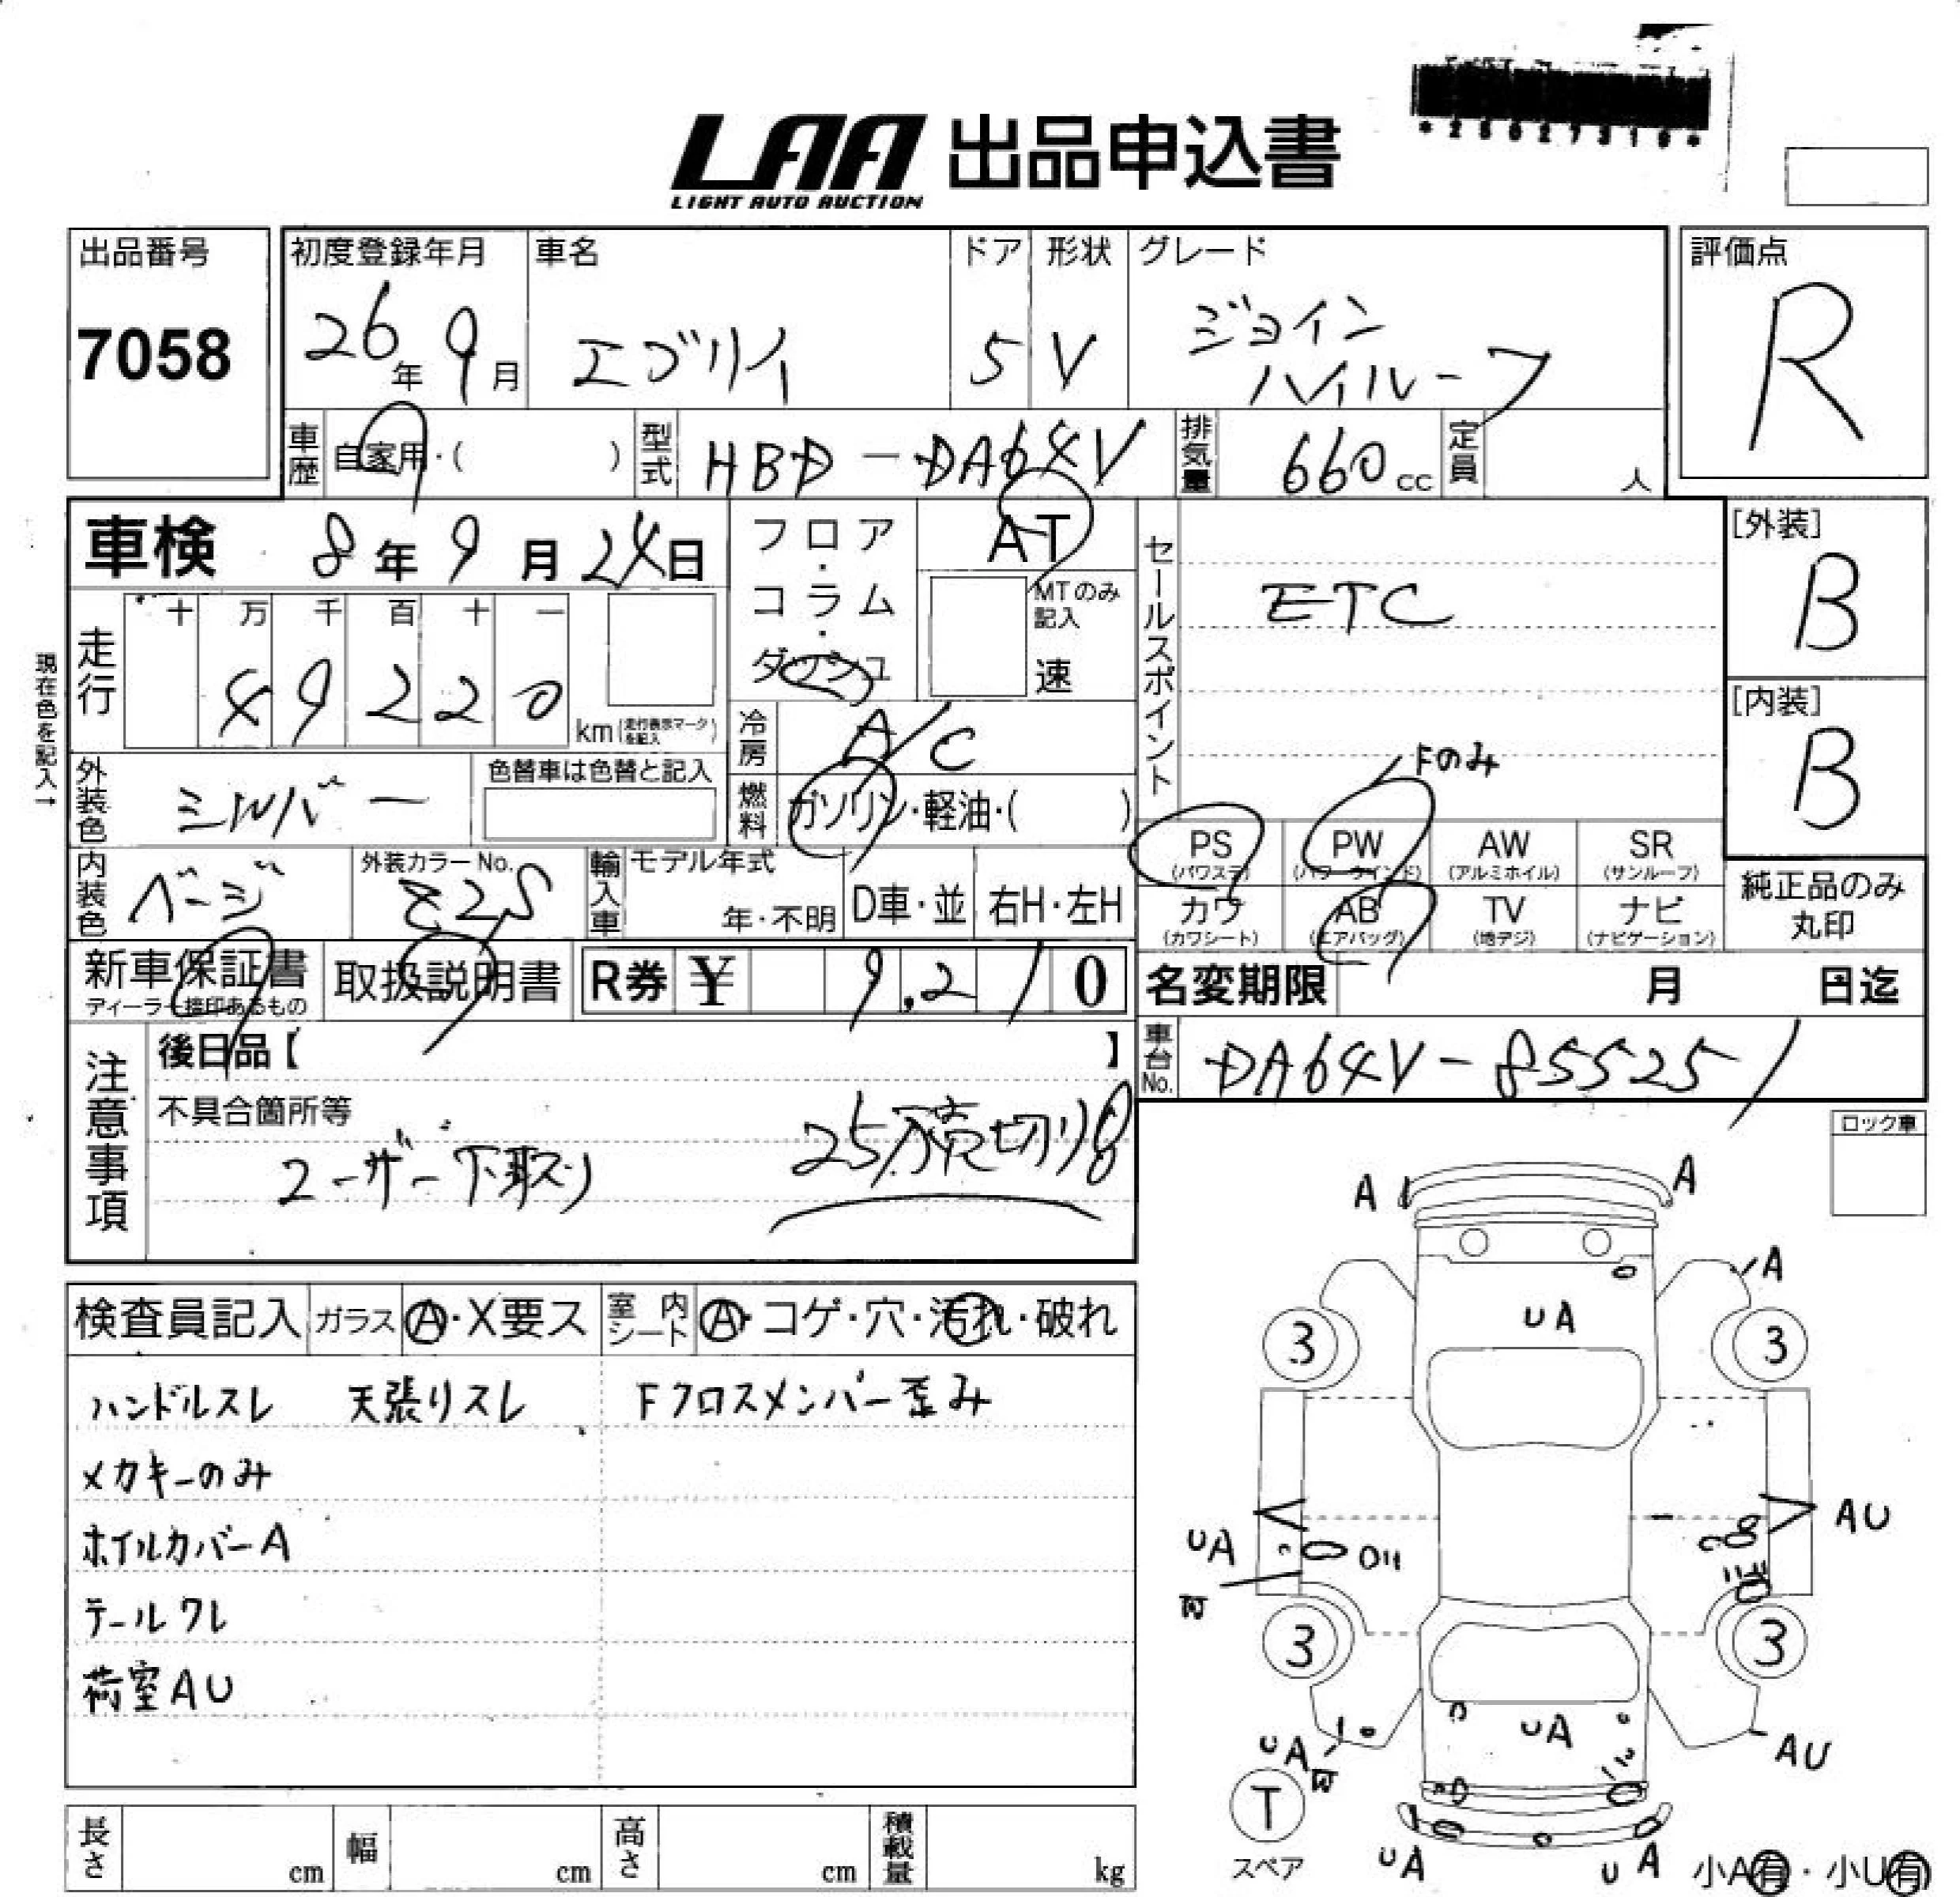 LAA 出品申込書
LIGHT AUTO AUCTION
出品番号
7058
初度登録年月
26年 9月
車名
エブリイ
ドア
5
形状
V
グレード
ジョイン
ハイルーフ
評価点
R
車歴
自家用・( )
型式
HBD-DA64V
排気量
660cc
定員
人
車検 8年 9月 24日
フロア・コラム・ダッシュ
AT
MTのみ記入
速
セールスポイント
ETC
Fのみ
[外装]
B
[内装]
B
現在色を記入→
走行
十 万 千 百 十 一
4 9 2 2 0 km (走行表示マークを記入)
冷房
A/C
燃料
ガソリン・軽油・( )
外装色
シルバー
色替車は色替と記入
内装色
ベージ
外装カラーNo.
Z2S
輸入車
モデル年式
年・不明
D車・並
右H・左H
PS (パワステ)
PW (パワーウインド)
AW (アルミホイル)
SR (サンルーフ)
カワ (カワシート)
AB (エアバッグ)
TV (地デジ)
ナビ (ナビゲーション)
純正品のみ丸印
新車保証書
ディーラー捺印あるもの
取扱説明書
R券 ¥ 9,210
名変期限 月 日迄
車台No.
DA64V-855251
注意事項
後日品【 】
不具合箇所等
ユーザー下取り
25万売切り
ロック車
検査員記入
ガラス A・X要ス
室内シート A・コゲ・穴・汚れ・破れ
ハンドルスレ 天張りスレ Fクロスメンバー歪み
メカキーのみ
ホイルカバーA
テールワレ
荷室AU
A A
A
UA
3 3
AU
UA
3 3
UA
UA
AU
T
スペア
UA
UA
小A有・小U有
長さ cm
幅 cm
高さ cm
積載量 kg